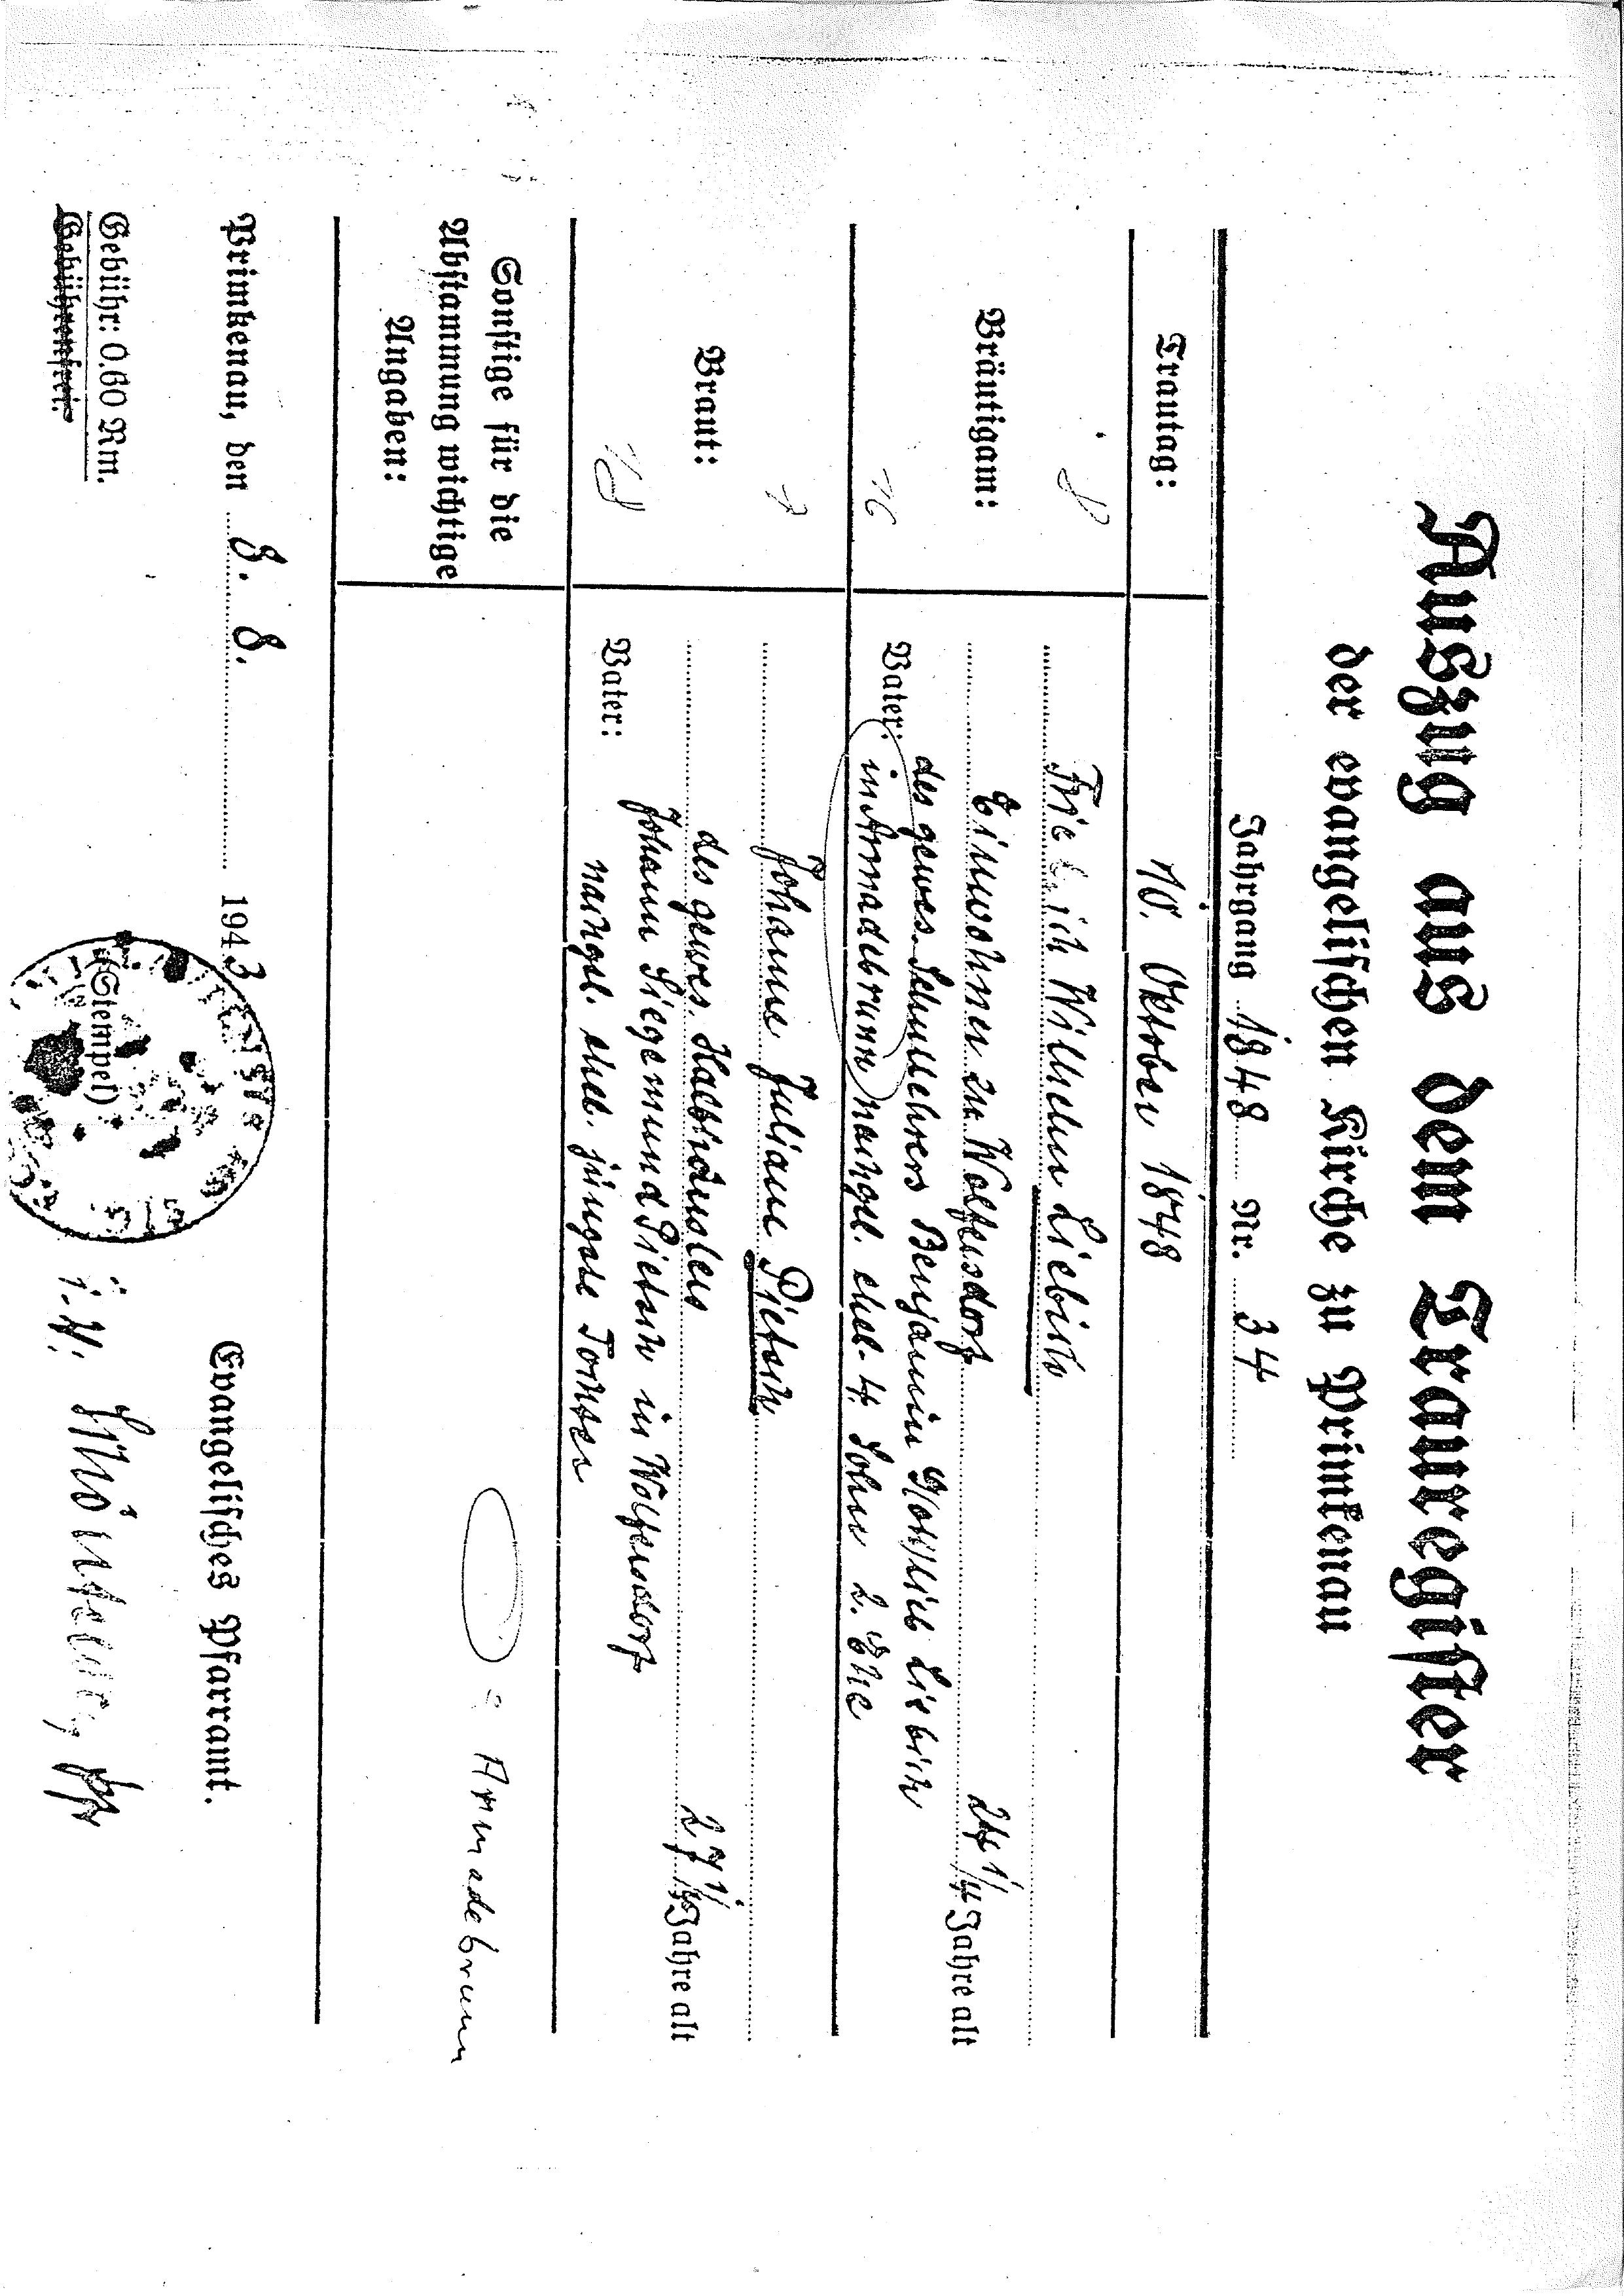 Auszug aus dem Trauregister
der evangelischen Kirche zu Primkenau
Jahrgang 1848 Nr. 34
Trautag: 10. Oktober 1848
8
Bräutigam:
16
Friedrich Wilhelm Liebich
Einwohner zu Wolfersdorf 24 1/4 Jahre alt
Vater: des gewes. Schullehrers Benjamin Gottlieb Liebich
in Armadebrunn nachgel. ehel. 4. Sohn 2. Ehe
7
Braut:
18
Johanne Juliane Pietsch
des gewes. Halbhäuslers 27 1/4 Jahre alt
Vater: Johann Siegemund Pietsch in Wolfersdorf
nachgel. ehel. jüngste Tochter
Sonstige für die
Abstammung wichtige
Angaben:
= Armadebrunn
Primkenau, den 8. 8. 1943
(Stempel)
Evangelisches Pfarramt.
Gebühr: 0.60 Rm.
Gebührenfrei.
i. V.